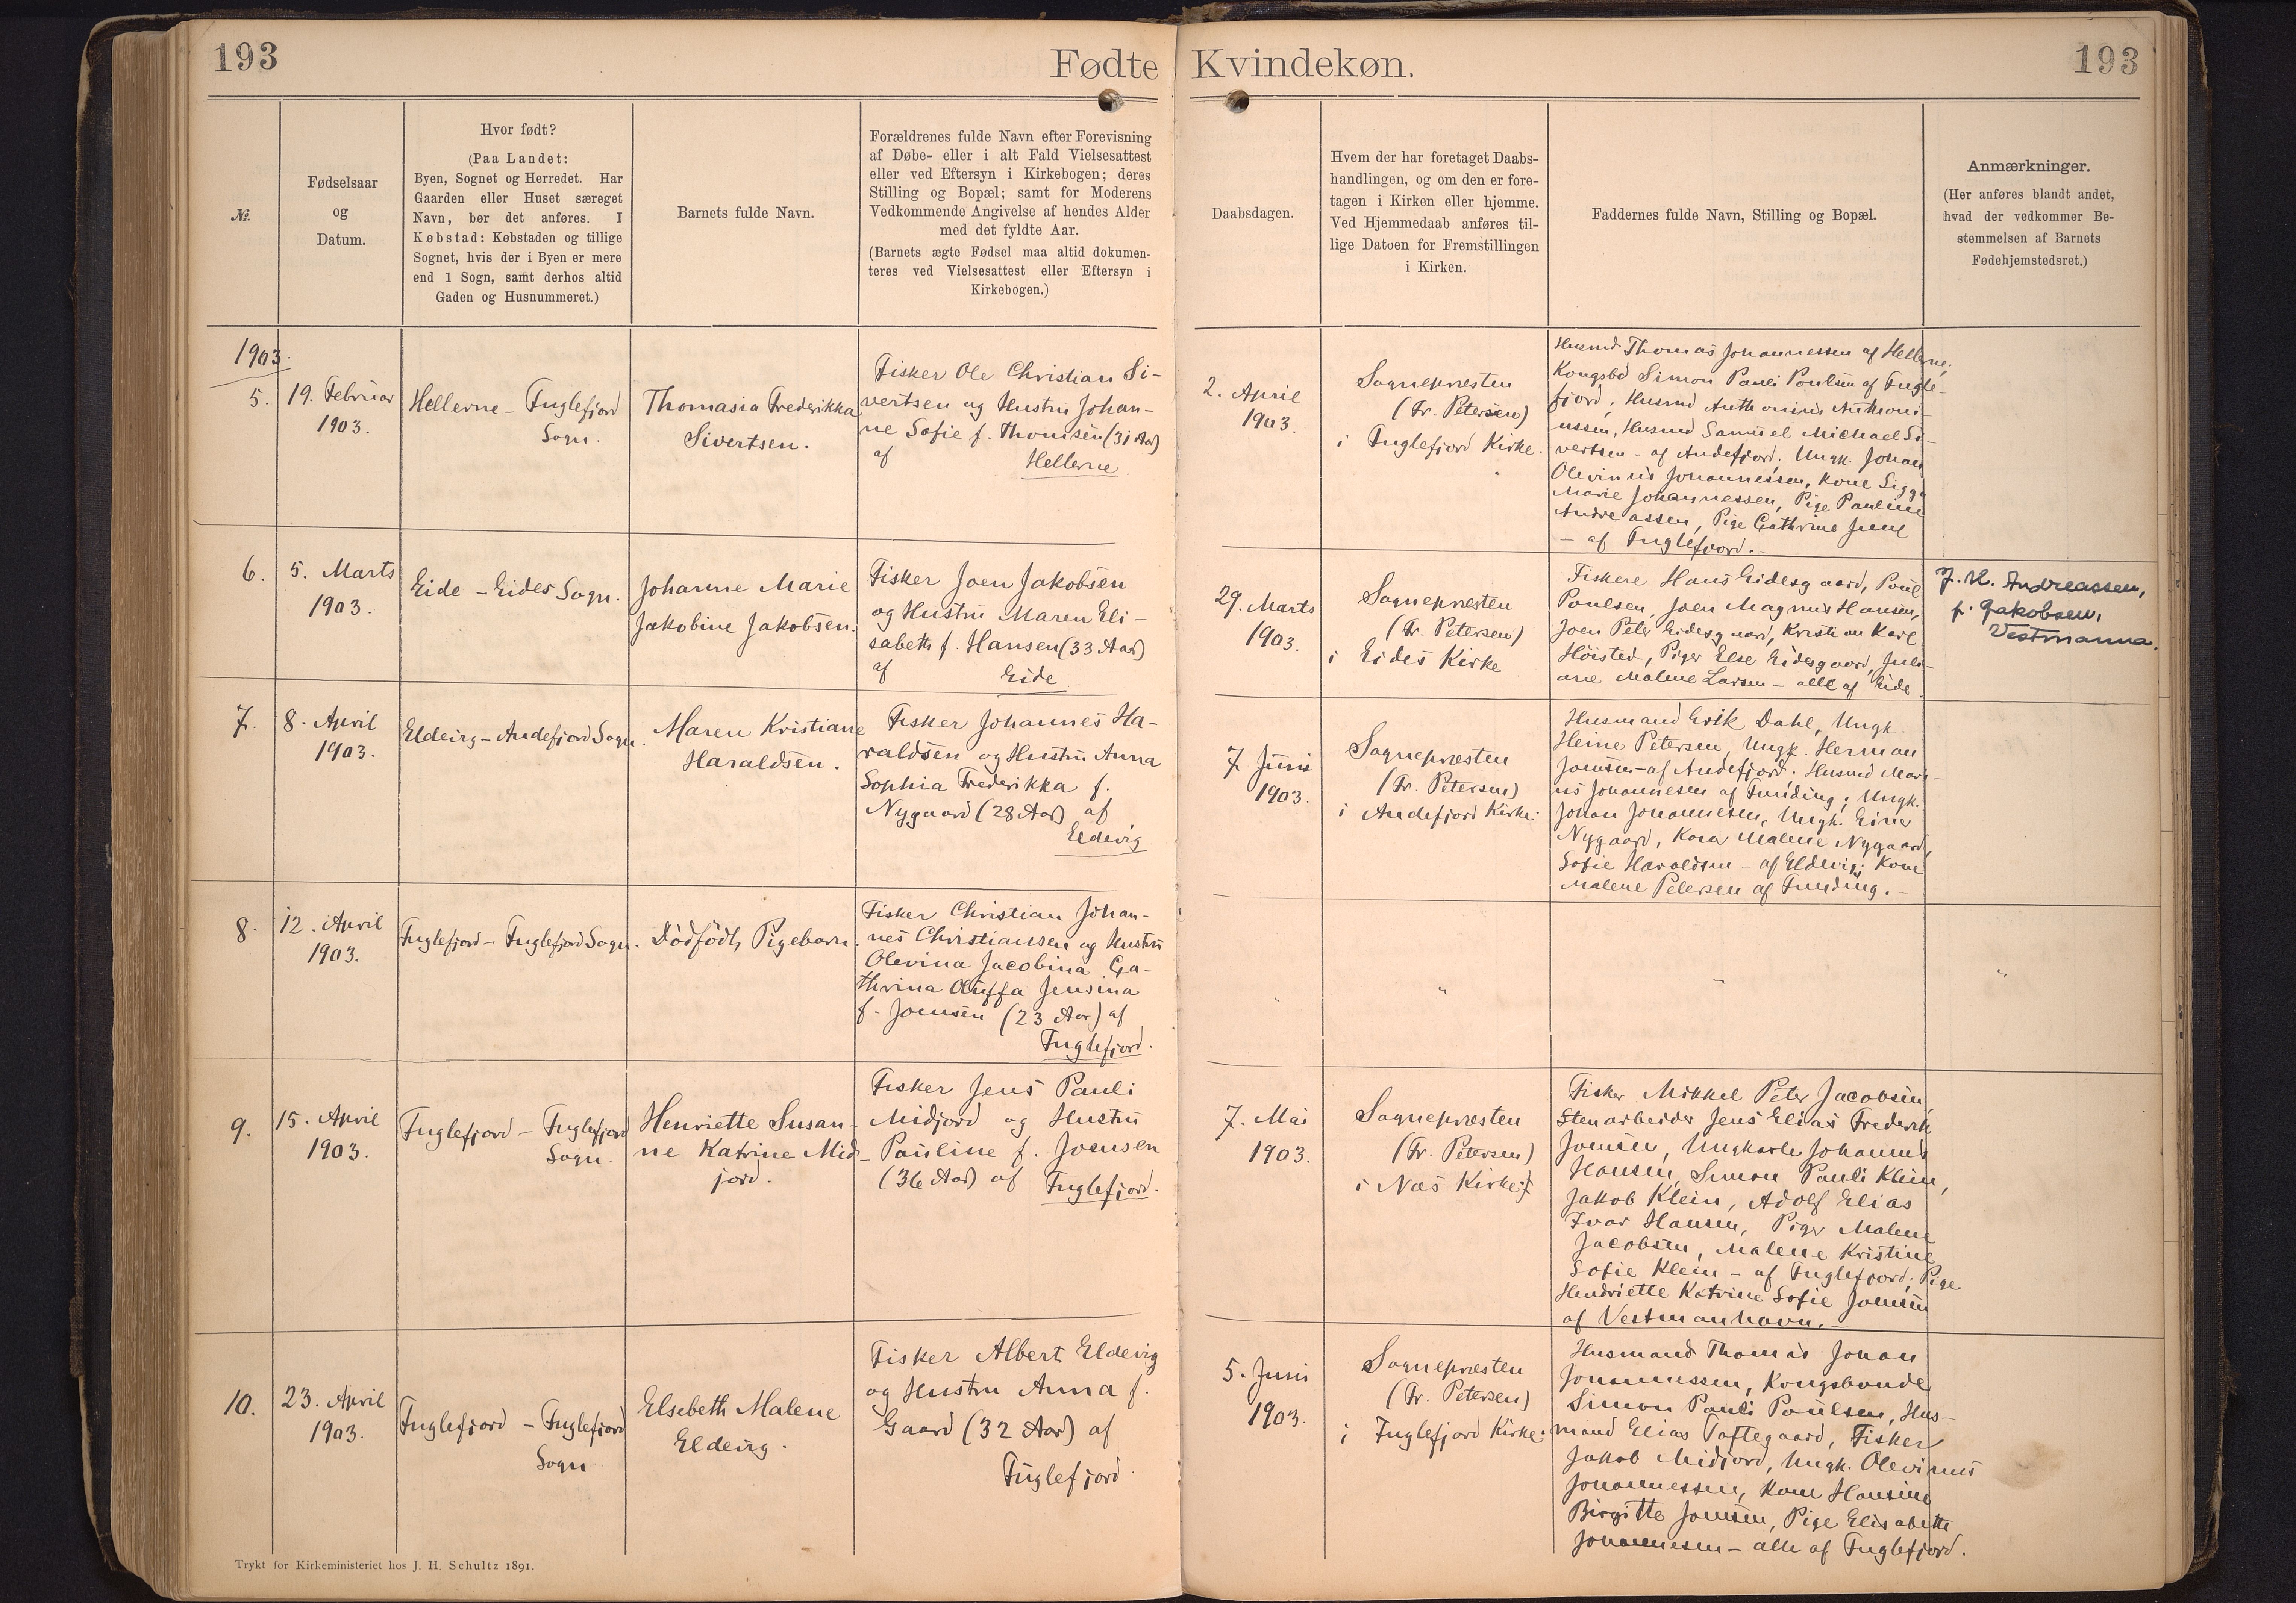 193
Fødte
Kvindekøn.
193
№.
Fødselsaar
og
Datum.
Hvor født?
(Paa Landet:
Byen, Sognet og Herredet. Har
Gaarden eller Huset særeget
Navn, bør det anføres. I
Købstad: Købstaden og tillige
Sognet, hvis der i Byen er mere
end 1 Sogn, samt derhos altid
Gaden og Husnummeret.)
Barnets fulde Navn.
Forældrenes fulde Navn efter Forevisning
af Døbe- eller i alt Fald Vielsesattest
eller ved Eftersyn i Kirkebogen; deres
Stilling og Bopæl; samt for Moderens
Vedkommende Angivelse af hendes Alder
med det fyldte Aar.
(Barnets ægte Fødsel maa altid dokumen-
teres ved Vielsesattest eller Eftersyn i
Kirkebogen.)
Daabsdagen.
Hvem der har foretaget Daabs-
handlingen, og om den er fore-
tagen i Kirken eller hjemme.
Ved Hjemmedaab anføres til-
lige Datoen for Fremstillingen
i Kirken.
Faddernes fulde Navn, Stilling og Bopæl.
Anmærkninger.
(Her anføres blandt andet,
hvad der vedkommer Be-
stemmelsen af Barnets
Fødehjemstedsret.)
1903.
5.
19. Februar
1903.
Hellerne - Fuglefjord
Sogn.
Thomasia Frederikka
Sivertsen.
Fisker Ole Christian Si-
vertsen og Hustru Johan-
ne Sofie f. Thomsen (31 Aar)
af
Hellerne
2. April
1903.
Sognepræsten
(Fr. Petersen)
i Fuglefjord Kirke.
Husmd Thomas Johannessen af Hellerne,
Kongsbd Simon Pauli Poulsen af Fugle-
fjord, Husmd Anthoninus Anthoni-
ussen, Husmd Samuel Michael Si-
vertsen - af Andefjord, Ungk. Johan
Olevinus Johannessen, Kone Sigga
Marie Johannessen, Pige Pauline
Andreassen, Pige Cathrine
- af Fuglefjord.
6.
5. Marts
1903.
Eide - Eides Sogn.
Johanne Marie
Jakobine Jakobsen.
Fisker Joen Jakobsen
og Hustru Maren Eli-
sabeth f. Hansen (33 Aar)
af
Eide
29. Marts
1903.
Sognepræsten
(Fr. Petersen)
i Eides Kirke
Fiskere Hans Eidesgaard, Poul
Poulsen, Joen Magnus Hansen,
Joen Peter Eidesgaard, Kristian Karl
Höisted, Piger Else Eidesgaard, Juli-
ane Malene Larsen - alle af Eide.
J. K. Andreassen,
f. Jakobsen,
Vestmanna.
7.
8. April
1903.
Eldevig - Andefjord Sogn.
Maren Kristiane
Haraldsen.
Fisker Johannes Ha-
raldsen og Hustru Anna
Sophia Frederikka f.
Nygaard (28 Aar) af
Eldevig
7 Juni
1903.
Sognepræsten
(Fr. Petersen)
i Andefjord Kirke.
Husmand Erik Dahl, Ungk.
Heine Petersen, Ungk. Herman
Joensen - af Andefjord; Husmd Mari-
us Johannesen af Funding; Ungk.
Johan Johannesen, Ungk. Einer
Nygaard, Kona Malene Nygaard,
Sofie Haraldsen - af Eldevig; Kone
Malene Petersen af Funding. -
8.
12. April
1903.
Fuglefjord - Fuglefjord Sogn.
Dödfödt, Pigebarn.
Fisker Christian Johan-
nes Christiansen og Hustru
Olevina Jacobina Ca-
thrina Oluffa Jensina
f. Joensen (23 Aar) af
Fuglefjord.
"
"
"
"
9.
15. April
1903.
Fuglefjord - Fuglefjord
Sogn.
Henriette Susan-
ne Katrine Mid-
jord.
Fisker Jens Pauli
Midjord og Hustru
Pauline f. Joensen
(36 Aar) af Fuglefjord.
7. Mai
1903.
Sognepræsten
(Fr. Petersen)
i Næs Kirke
Fisker Mikkel Peter Jacobsen
Stenarbeider Jens Elias Frederik
Joensen, Ungkarle Johannes
Hansen, Simon Pauli Klein,
Jakob Klein, Adolf Elias
Ivar Hansen, Piger Malene
Jacobsen, Malene Kristine
Sofie Klein - af Fuglefjord; Pige
Hendriette Katrine Sofie Joensen
af Vestmanhavn. -
10.
23. April
1903.
Fuglefjord - Fuglefjord
Sogn
Elsebeth Malene
Eldevig.
Fisker Albert Eldevig
og Hustru Anna f.
Gaard (32 Aar) af
Fuglefjord.
5. Juni
1903.
Sognepræsten
(Fr. Petersen)
i Fuglefjord Kirke.
Husmand Thomas Johan
Johannessen, Kongsbonde
Simon Pauli Poulsen, Hus-
mand Elias Toftegaard, Fisker
Jakob Midjord, Ungk. Olevinus
Johannessen, Kone Hansine
Birgitte Joensen, Pige Elisabeth
Johannesen - alle af Fuglefjord.
Trykt for Kirkeministeriet hos J. H. Schultz 1891.